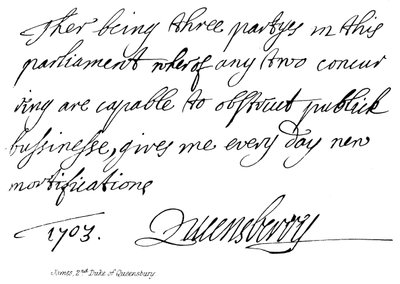 Ther being three partyes in this
parliament wherof any two concur
ring are capable to obstruct publick
bussinesse, gives me every day new
mortifications
1703. Queensberry
James, 2nd Duke of Queensbury